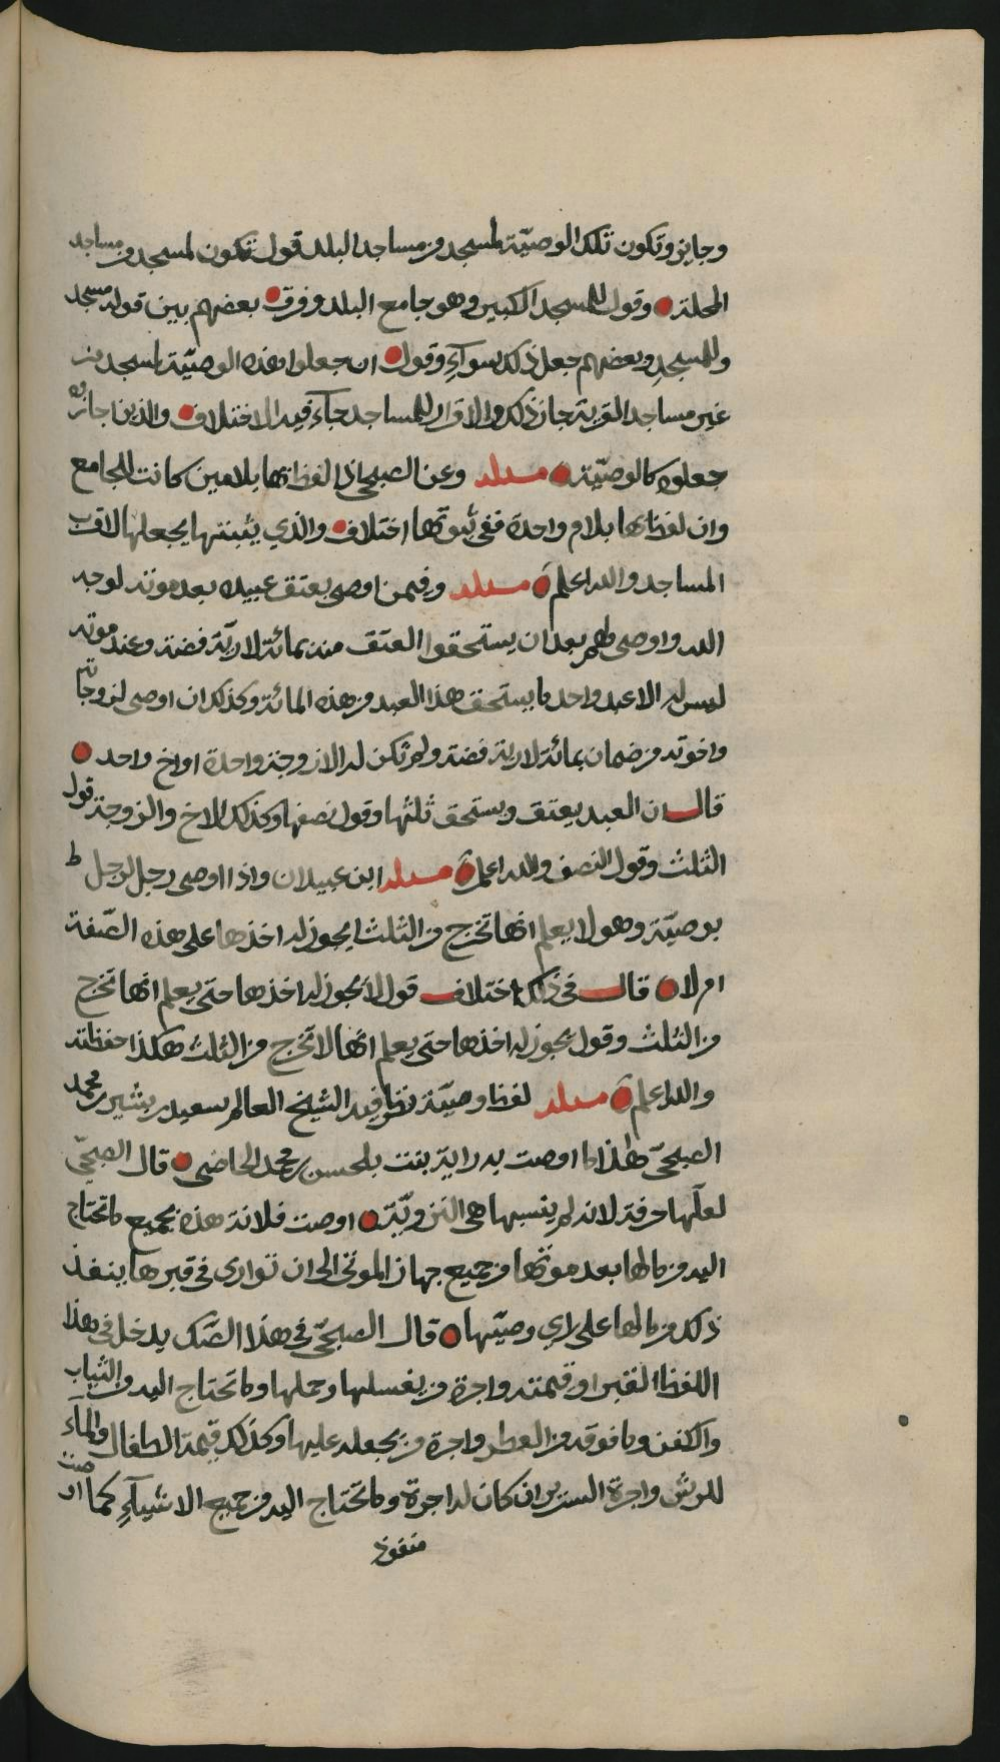 وجايز وتكون تلك الوصيّة لمسجد من مساجد البلد قول تكون لمسجد من مساجد
المحلة وقول للمسجد الكبير وهو جامع البلد وفرق بعضهم بين قوله مسجد
وللمسجد وبعضهم جعل ذلك سوآء وقول ان جعلوا هذه الوصيّة لمسجد من
غير مساجد القرية جاز ذلك والاقرار للمساجد جآء فيه الاختلاف والذين اجازوه
جعلوه كالوصيّة مسئلة وعن الصبحي اذا لفظ بها بلامين كانت للجامع
وان لفظ بها بلام واحدة ففي ثبوتها اختلاف والذي يثبتها يجعلها لاقرب
المساجد والله اعلم مسئلة وفيمن اوصى بعتق عبيده بعد موته لوجه
الله واوصى لهم بعد ان يستحقوا العتق منه بمائة لارية فضة وعند موته
ليس له الا عبد واحد ما يستحق هذا العبد من هذه المائة وكذلك ان اوصى لزوجاته
واخوته من ضمان بمائة لارية فضة ولم تكن له الا زوجة واحدة او اخ واحد
قال ان العبد يعتق ويستحق ثلثها وقول نصفها وكذلك الاخ والزوجة قول
الثلث وقول النصف والله اعلم مسئلة ابن عبيدان واذا اوصى رجل لرجل
بوصيّة وهو لا يعلم انها تخرج من الثلث ايجوز له اخذها على هذه الصّفة
ام لا قال في ذلك اختلاف قول لا يجوز له اخذها حتى يعلم انها تخرج
من الثلث وقول يجوز له اخذها حتى يعلم انها لا تخرج من الثلث هكذا حفظته
والله اعلم مسئلة لفظ وصيّة نظر فيه الشيخ العالم سعيد بن بشير بن محمد
الصبحيّ هذا ما اوصت به راية بنت بلحسن بن محمد الحاضي قال الصبحيّ
لعلّها حرفة لانه لم ينسبها هي النزويّة اوصت فلانة هذه بجميع ما تحتاج
اليه من مالها بعد موتها من جميع جهاز الموتى الى ان توارى في قبرها ينفذ
ذلك من مالها على راي وصيّها قال الصبحيّ في هذا الصّك يدخل في هذا
اللفظ القبر او قيمته واجرة من يغسلها وحملها وما تحتاج اليه من الثياب
والكفن وما فوقه من العطر واجرة من يجعله عليها وكذلك قيمة الطفال والمآء
للرش واجرة السرير ان كان له اجرة وما تحتاج اليه من جميع الاشيآء كما اوصت